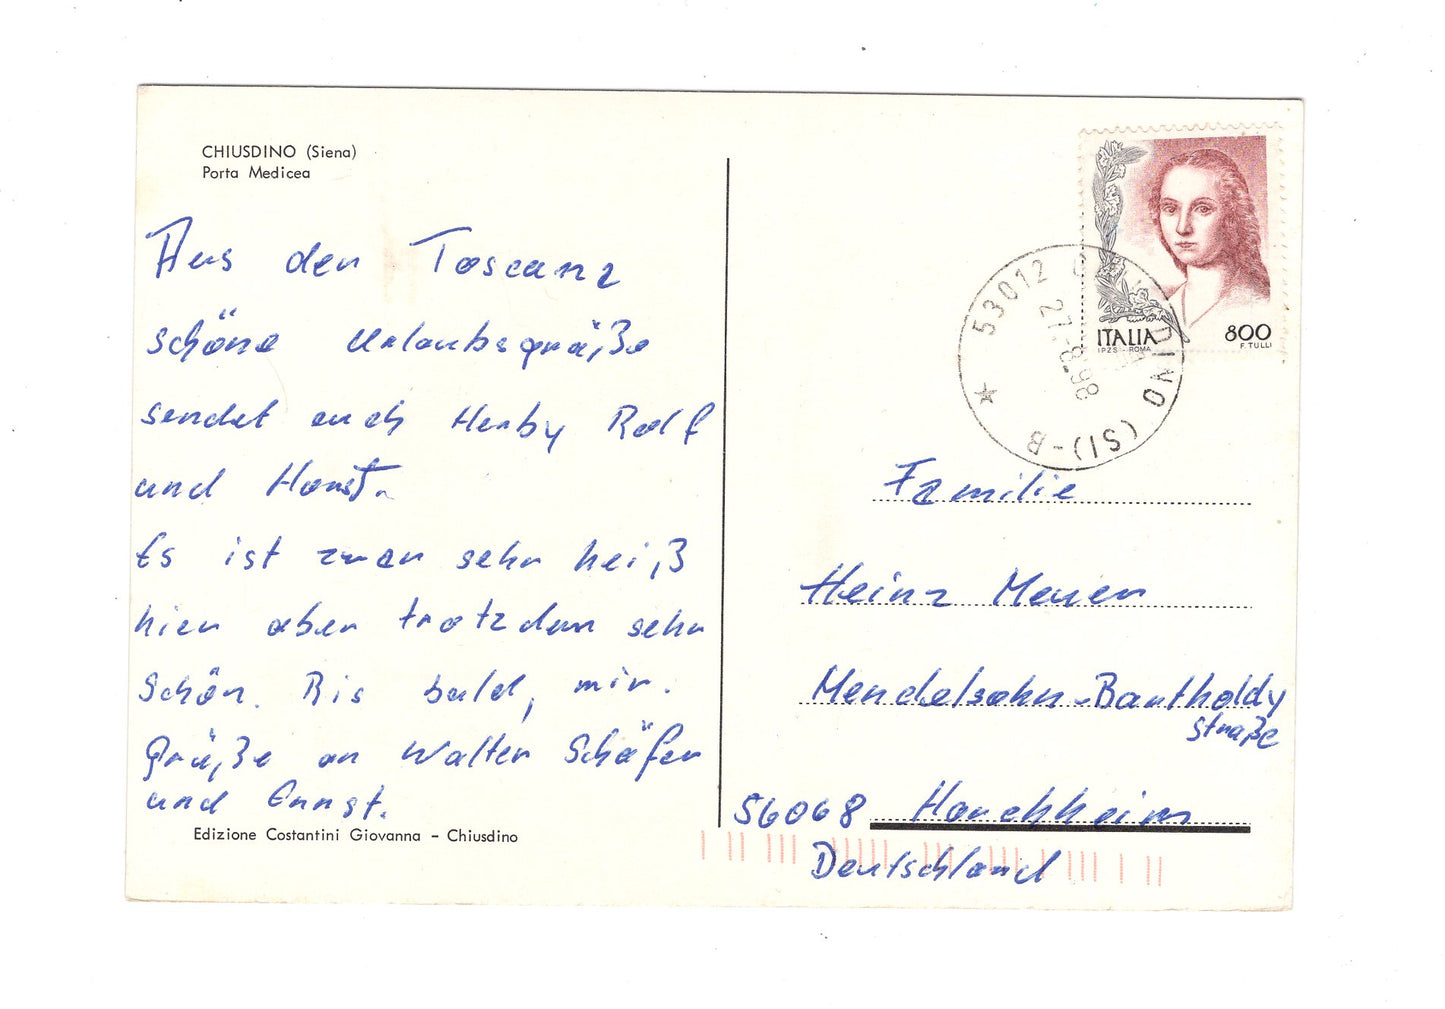 CHIUSDINO (Siena)
Porta Medicea
Aus der Toscana
schöne Urlaubsgrüße
sendet euch Herby Rolf
und Horst.
Es ist zwar sehr heiß
hier aber trotzdem sehr
schön. Bis bald, mir.
Grüße an Walter Schäfer
und Ernst.
Edizione Costantini Giovanna – Chiusdino
ITALIA 800
IPZS - ROMA F. TULLI
53012 CHIUSDINO (SI) - B
27-8-98
Familie
Heinz Meuer
Mendelsohn-Bartholdy
straße
56068 Horchheim
Deutschland